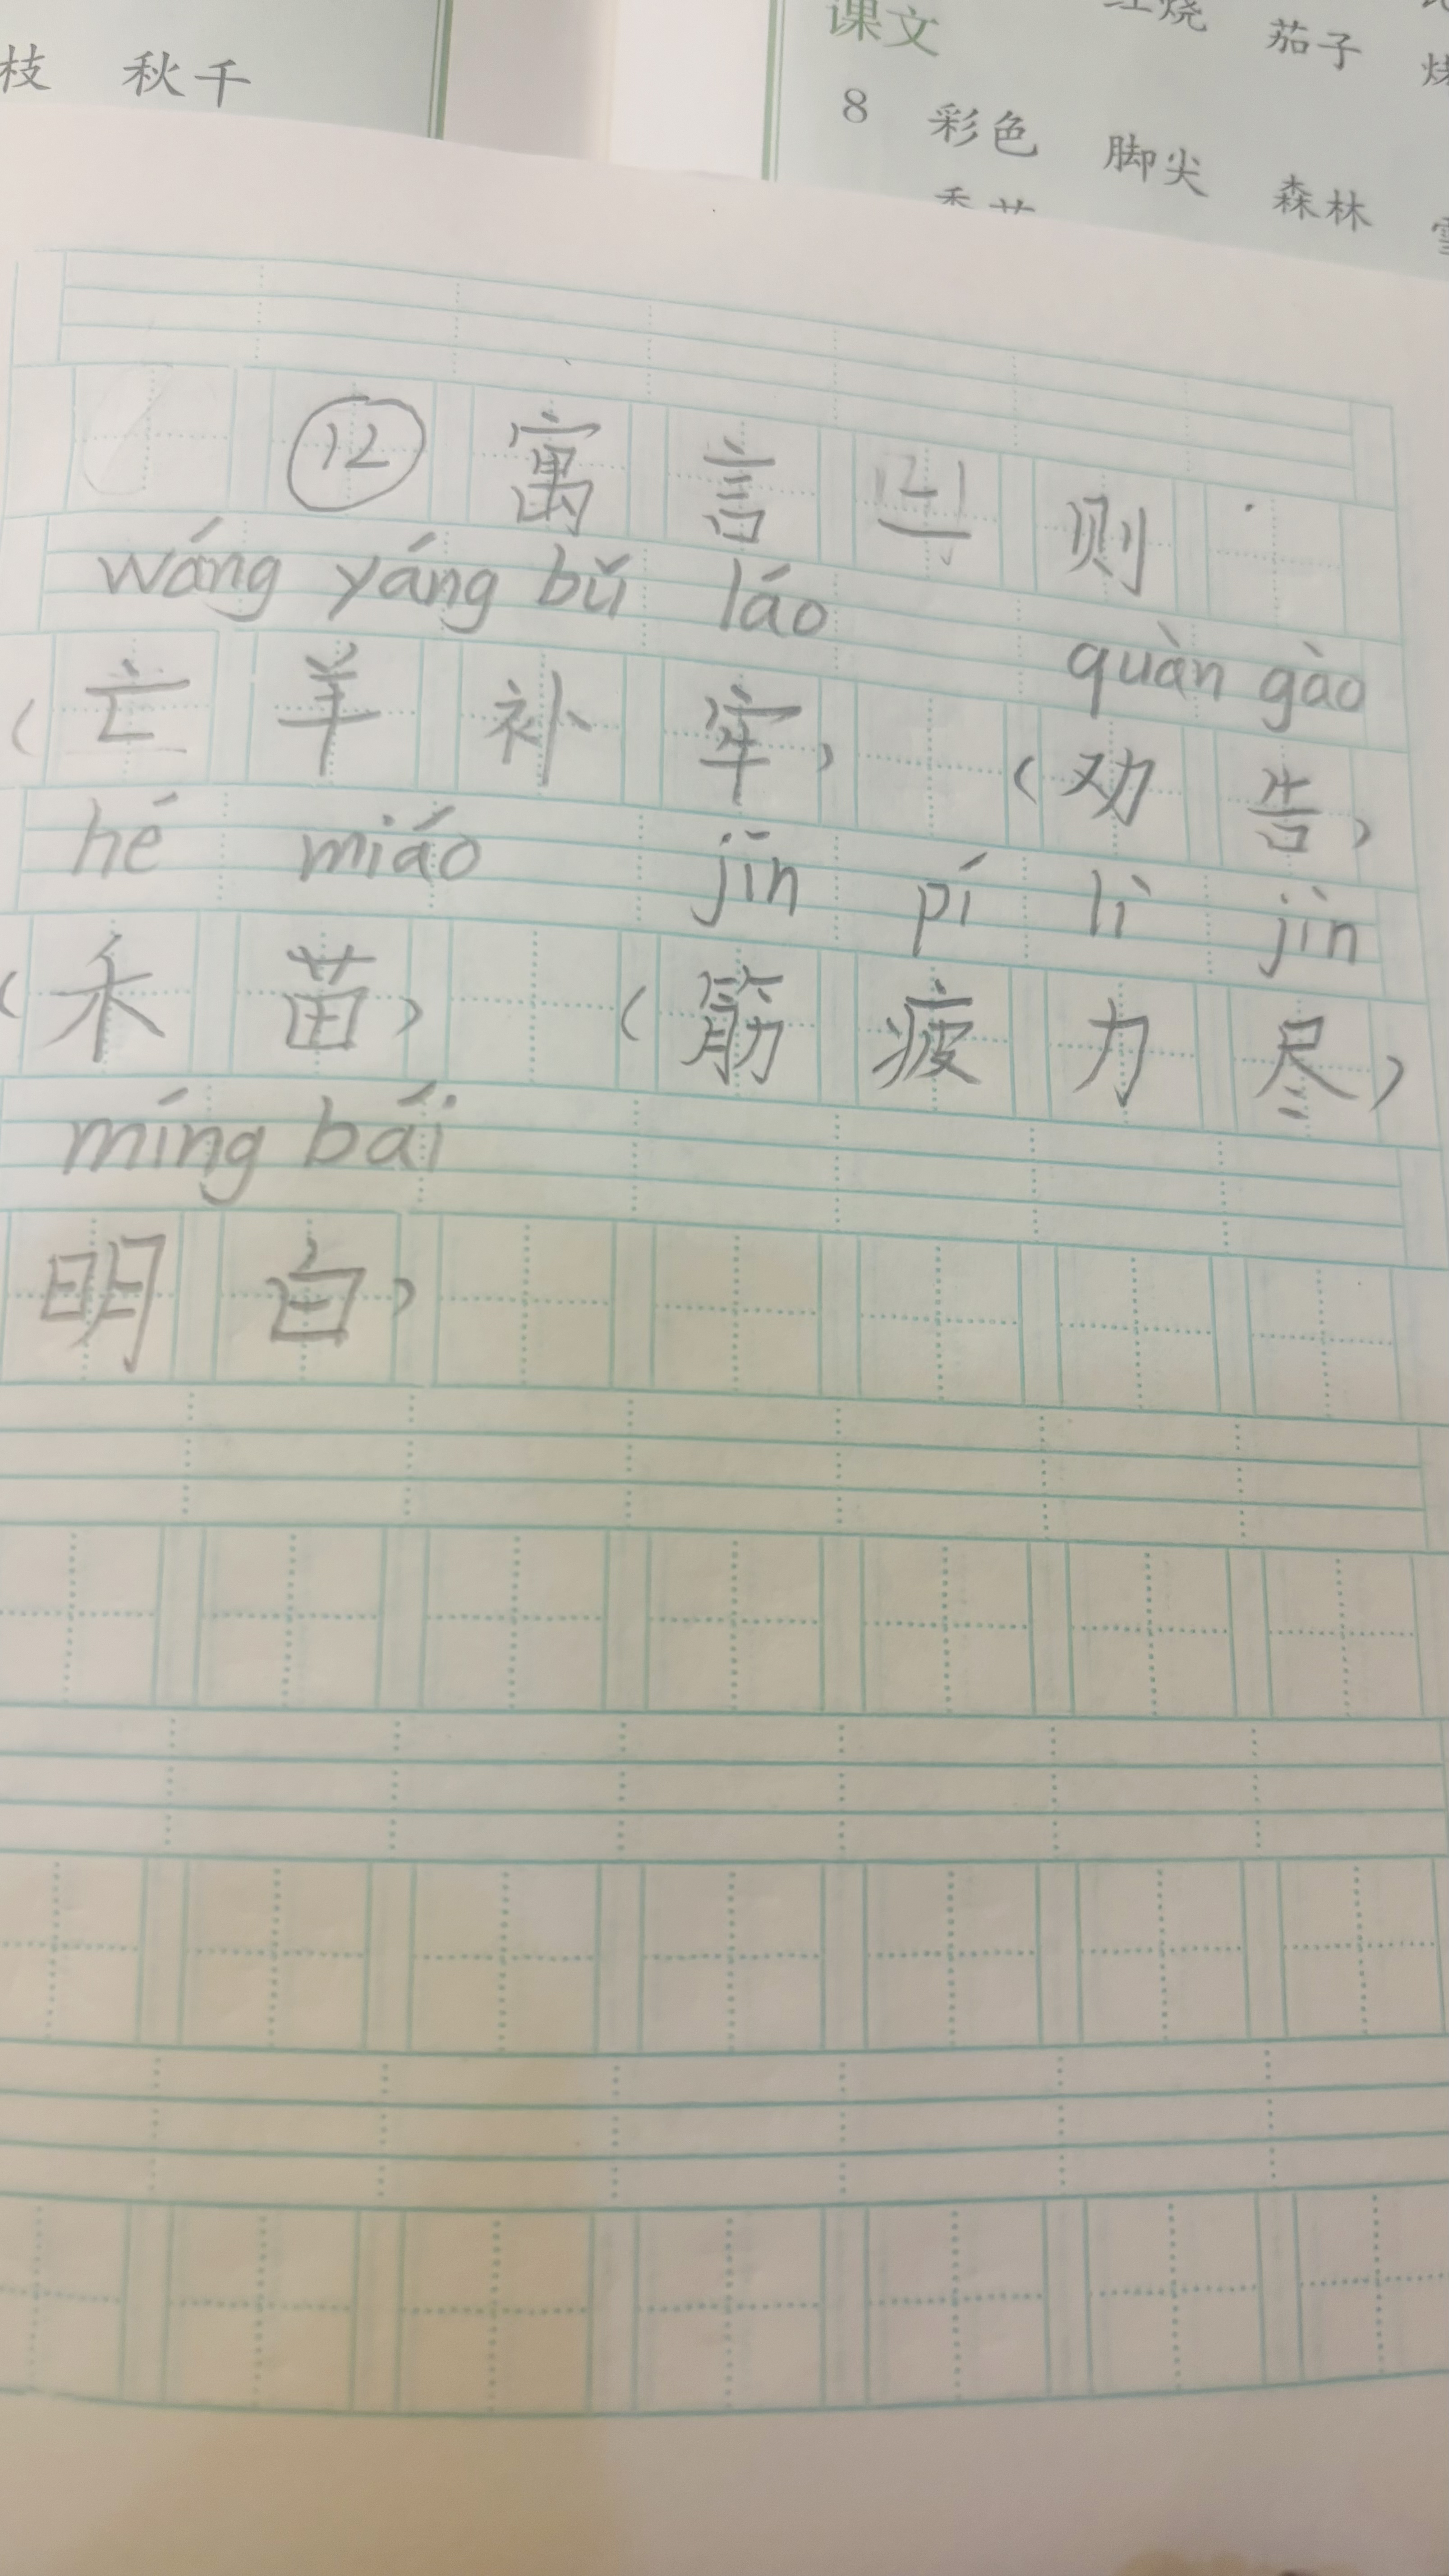 枝 秋千
课文 红烧 茄子
8 彩色 脚尖 森林
⑫ 寓言 则
wáng yáng bǔ láo quàn gào
(亡羊补牢) (劝告)
hé miáo jīn pí lì jìn
(禾苗) (筋疲力尽)
míng bái
明白)